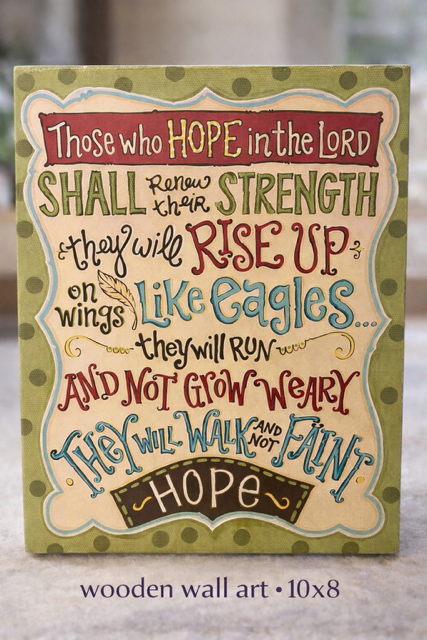 Those who HOPE in the LORD
SHALL Renew their STRENGTH
they will RISE UP
on wings Like eagles...
they will RUN
AND NOT GROW WEARY
THEY WILL WALK AND NOT FAINT
HOPE
wooden wall art • 10x8